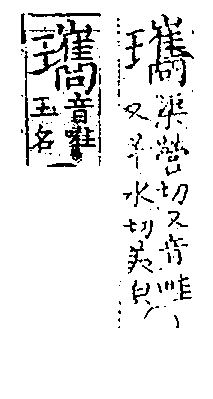 瓗
渠營切又音唯
又羊水切美皃
瓗
音唯
玉名